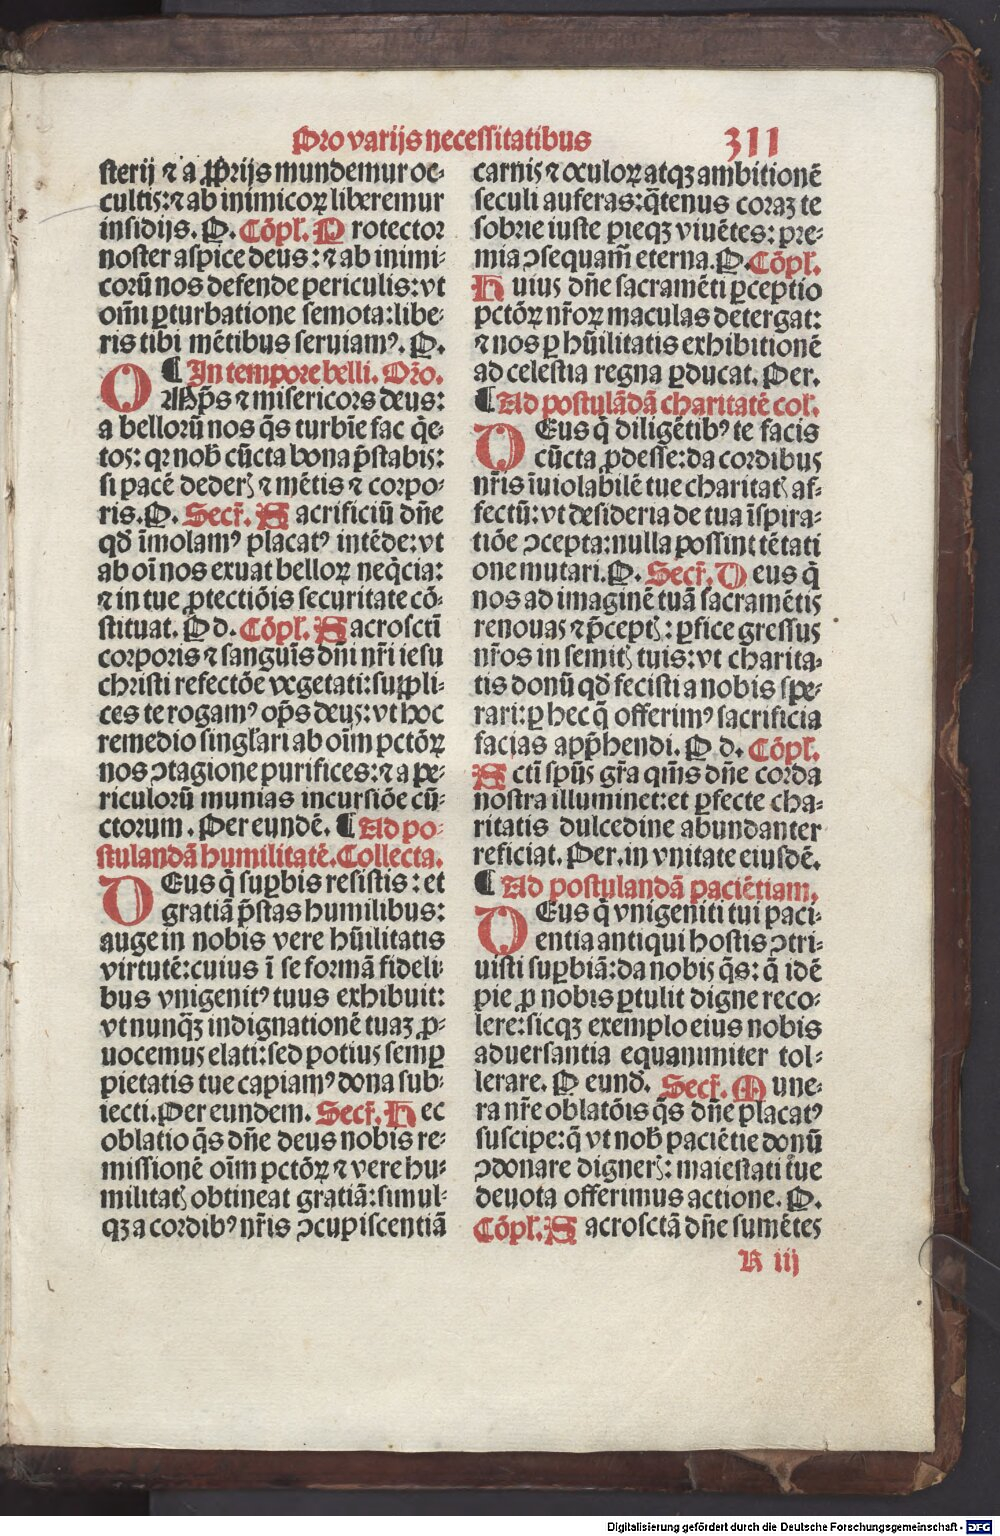 Pro varijs necessitatibus 311
sterij ⁊ a ꝓprijs mundemur oc⸗
cultis:⁊ ab inimicoꝝ liberemur
insidijs. P. Cōpl'. P rotector
noster aspice deus: ⁊ ab inimi⸗
corū nos defende periculis: vt
om̄i ꝑturbatione semota: libe⸗
ris tibi mētibus seruiamꝰ. P.
¶ In tempore belli. Oro.
OMp̄s ⁊ misericors deus:
a bellorū nos q̄s turbīe fac q̄e⸗
tos: qꝛ nob̄ cūcta bona p̄stabis:
si pacē dederꝭ ⁊ mētis ⁊ corpo⸗
ris. P. Secr̄. S acrificiū dn̄e
qd̄ īmolamꝰ placatꝰ intēde: vt
ab oī nos exuat belloꝝ neq̄cia:
⁊ in tue ꝓtectiōis securitate cō⸗
stituat. P d. Cōpl'. S acrosctī
corporis ⁊ sanguīs dn̄i nr̄i iesu
christi refectōe vegetati: suppli⸗
ces te rogamꝰ op̄s deus: vt hoc
remedio singl'ari ab oīm pctōꝝ
nos ꝯtagione purifices:⁊ a pe⸗
riculorū munias incursiōe cū⸗
ctorum. Per eundē. ¶ Ad po⸗
stulandā humilitatē. Collecta.
DEus q̄ suꝑbis resistis: et
gratiā p̄stas humilibus:
auge in nobis vere hūilitatis
virtutē: cuius ī se formā fideli⸗
bus vnigenitꝰ tuus exhibuit:
vt nunqꝫ indignationē tuaꝫ ꝓ⸗
uocemus elati: sed potius semꝑ
pietatis tue capiamꝰ dona sub⸗
iecti. Per eundem. Secr̄. H ec
oblatio q̄s dn̄e deus nobis re⸗
missionē oīm pctōꝝ ⁊ vere hu⸗
militatꝭ obtineat gratiā: simul⸗
qꝫ a cordibꝰ nr̄is ꝯcupiscentiā
carnis ⁊ oculoꝝ atqꝫ ambitionē
seculi auferas: q̄tenus coraꝫ te
sobrie iuste pieqꝫ viuētes: pre⸗
mia ꝯsequam̄ eterna. P. Cōpl'.
H uius dn̄e sacramēti ꝑceptio
pctōꝝ nr̄oꝝ maculas detergat:
⁊ nos ꝑ hūilitatis exhibitionē
ad celestia regna ꝑducat. Per.
¶ Ad postulādā charitatē col'.
DEus q̄ diligētibꝰ te facis
cūcta ꝓdesse: da cordibus
nr̄is īuiolabilē tue charitatꝭ af⸗
fectū: vt desideria de tua īspira⸗
tiōe ꝯcepta: nulla possint tētati
one mutari. P. Secr̄. D eus q̄
nos ad imaginē tuā sacramētis
renouas ⁊ p̄ceptꝭ: ꝑfice gressus
nr̄os in semitꝭ tuis: vt charita⸗
tis donū qd̄ fecisti a nobis spe⸗
rari: ꝑ hec q̄ offerimꝰ sacrificia
facias app̄hendi. P d. Cōpl'.
S ctī spūs gr̄a qm̄s dn̄e corda
nostra illuminet: et ꝑfecte cha⸗
ritatis dulcedine abundanter
reficiat. Per. in vnitate eiusdē.
¶ Ad postulandā paciētiam.
DEus q̄ vnigeniti tui paci⸗
entia antiqui hostis ꝯtri⸗
uisti suꝑbiā: da nobis q̄s: q̄ idē
pie ꝓ nobis ꝑtulit digne reco⸗
lere: sicqꝫ exemplo eius nobis
aduersantia equanimiter tol⸗
lerare. P eund̄. Secr̄. M une⸗
ra nr̄e oblatōis q̄s dn̄e placatꝰ
suscipe: q̄ vt nob̄ paciētie donū
ꝯdonare dignerꝭ: maiestati tue
deuota offerimus actione. P.
Cōpl'. S acrosctā dn̄e sumētes
R iij
Digitalisierung gefördert durch die Deutsche Forschungsgemeinschaft - DFG